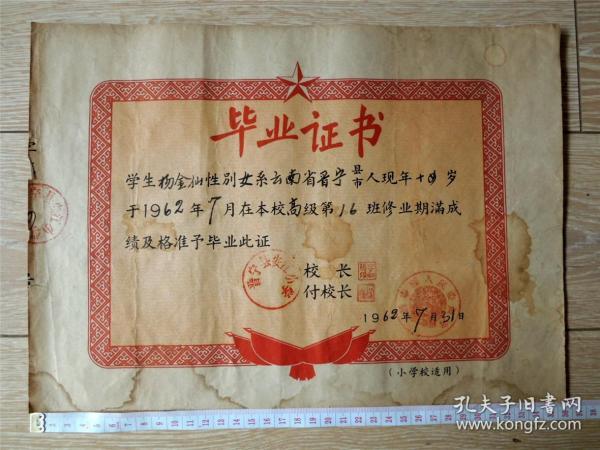 毕业证书
学生杨金仙性别女系云南省晋宁县市人现年十四岁
于1962年7月在本校高级第16班修业期满成
绩及格准予毕业此证
校长
付校长
1962年7月31日
(小学校适用)
孔夫子旧书网
www.kongfz.com